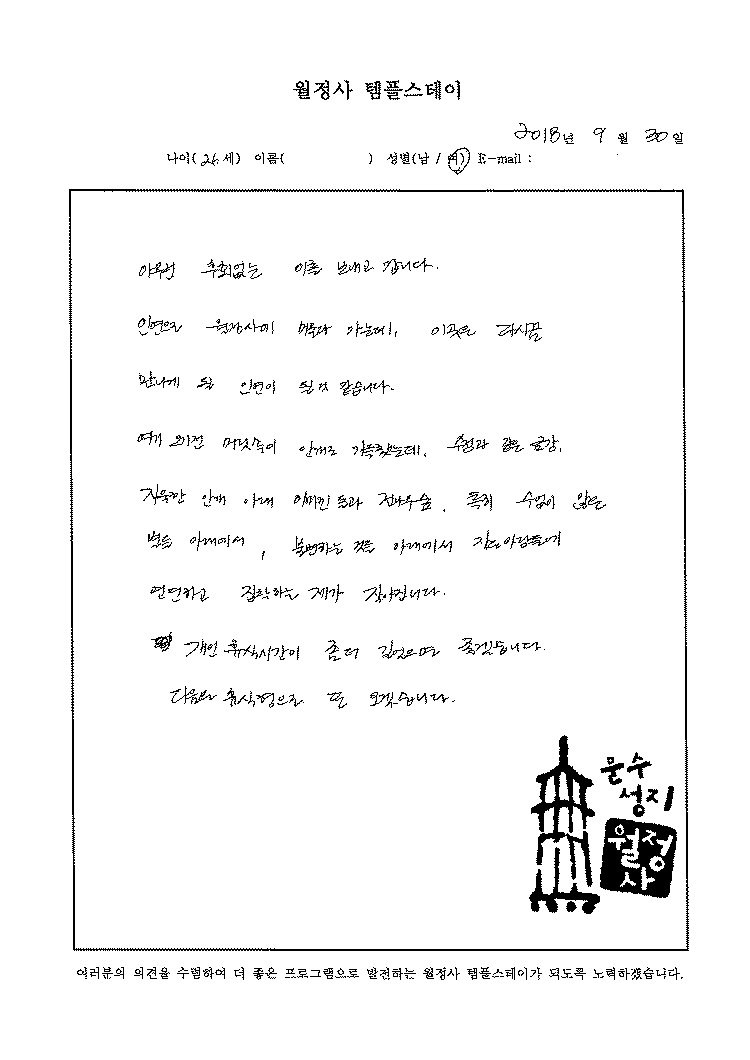 월정사 템플스테이
2018년 9월 30일
나이( 26 세) 이름( ) 성별(남 / 여) E-mail :
아무런 후회없는 이틀 보내고 갑니다.
인연으로 월정사에 머물다 가는데, 이곳은 다시금
만나게 될 인연이 될 것 같습니다.
여기 오기전 머릿속이 안개로 가득찼는데, 수정과 같은 금강,
자욱한 안개 아래 전나무숲, 특히 수없이 많은
별들 아래에서, 불변하는 것들 아래에서
연연하고 집착하는 제가 작아집니다.
개인 휴식시간이 좀 더 길었으면 좋겠습니다.
다음엔 휴식형으로 또 오겠습니다.
문수
성지
월정
사
여러분의 의견을 수렴하여 더 좋은 프로그램으로 발전하는 월정사 템플스테이가 되도록 노력하겠습니다.